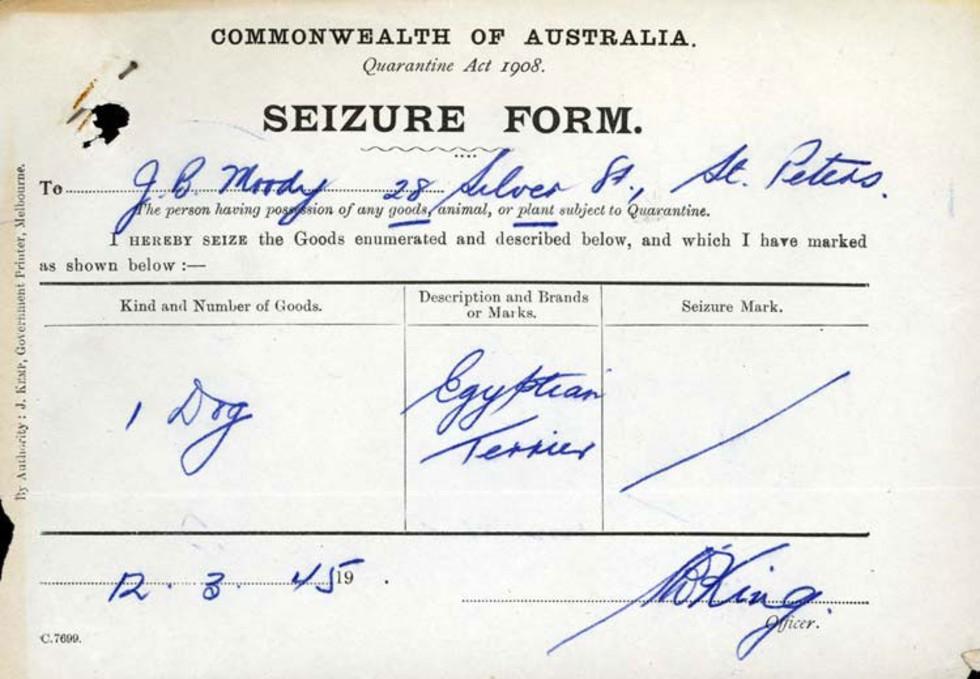 COMMONWEALTH OF AUSTRALIA.
Quarantine Act 1908.
SEIZURE FORM.
To J. B. Moody 28 Silver St., St. Peters.
The person having possession of any goods, animal, or plant subject to Quarantine.
I HEREBY SEIZE the Goods enumerated and described below, and which I have marked
as shown below :—
Kind and Number of Goods.
Description and Brands
or Marks.
Seizure Mark.
1 Dog
Egyptian
Terrier
12. 3. 45 19 .
King.
Officer.
C.7699.
By Authority: J. KEMP, Government Printer, Melbourne.